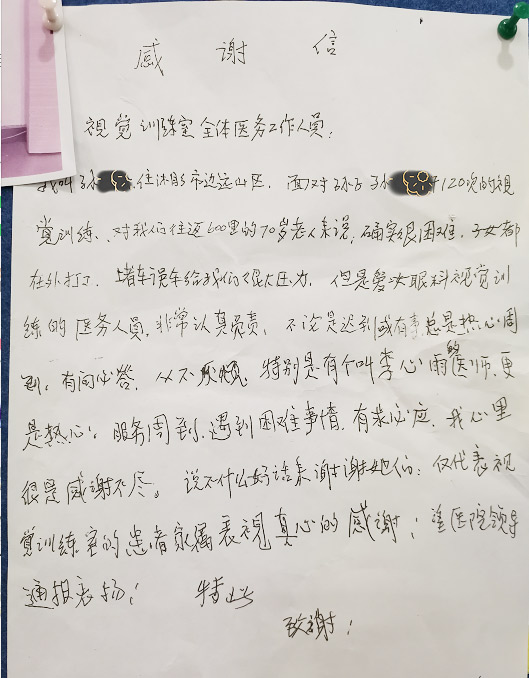 感 谢 信
视觉训练室全体医务工作人员：
我叫孙 住沐 市边远山区．面对孙子孙 120次的视
觉训练、对我们往返600里的70岁老人来说，确实很困难．子女都
在外打工．堵车误车给我们很大压力．但是爱 眼科视觉训
练的医务人员，非常认真负责．不论是迟到或有事总是热心周
到．有问必答．从不厌烦．特别是有个叫李心雨的医师，更
是热心．服务周到．遇到困难事情．有求必应．我心里
很是感谢不尽。说不什么好话来谢谢她们．仅代表视
觉训练室的患者家属表视真心的感谢；望医院领导
通报表扬； 特此
致谢；